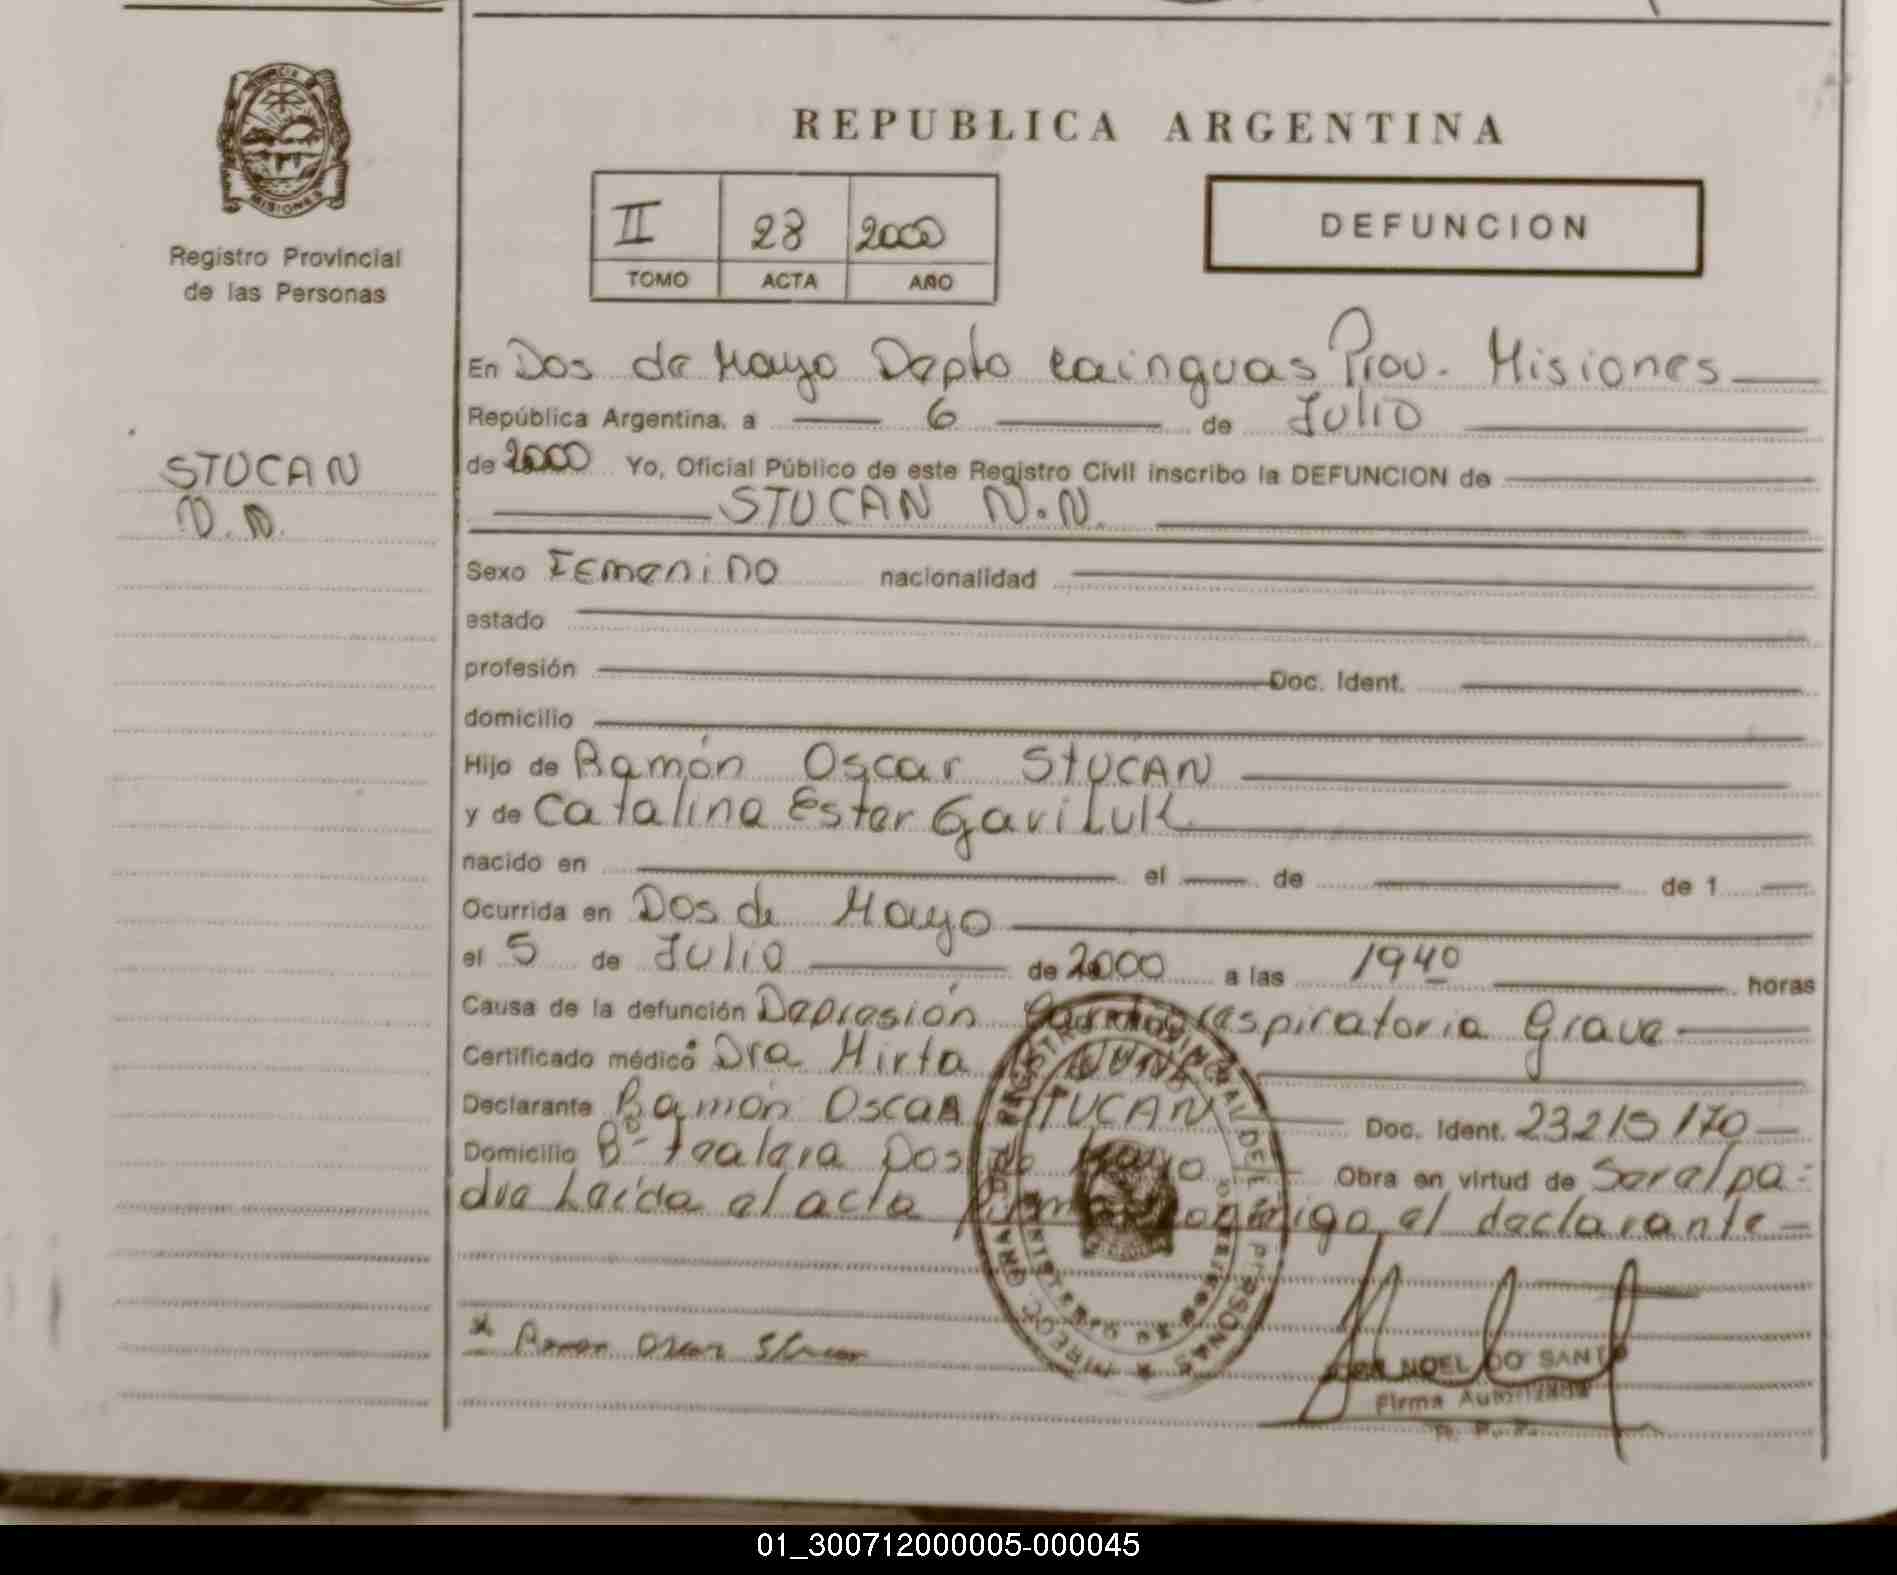 REPUBLICA ARGENTINA
PROVINCIA
MISIONES
Registro Provincial
de las Personas
II 28 2000
TOMO ACTA AÑO
DEFUNCION
STUCAN
N.N.
En Dos de Mayo Depto Cainguas Prov. Misiones
República Argentina, a 6 de Julio
de 2000 Yo, Oficial Público de este Registro Civil inscribo la DEFUNCION de
STUCAN N.N.
Sexo Femenino nacionalidad
estado
profesión Doc. Ident.
domicilio
Hijo de Ramón Oscar STUCAN
y de Catalina Ester Gaviluk
nacido en el de de 1
Ocurrida en Dos de Mayo
el 5 de Julio de 2000 a las 19 40 horas
Causa de la defunción Depresión respiratoria Grave
Certificado médico Dra Mirta
Declarante Ramón Oscar STUCAN Doc. Ident. 23215170
Domicilio Bº Dos de Mayo Obra en virtud de Ser el pa-
dre Leída el acta conmigo el declarante
Ramon Oscar Stucan
NOEL DO SANTO
Firma Autorizada
01_300712000005-000045